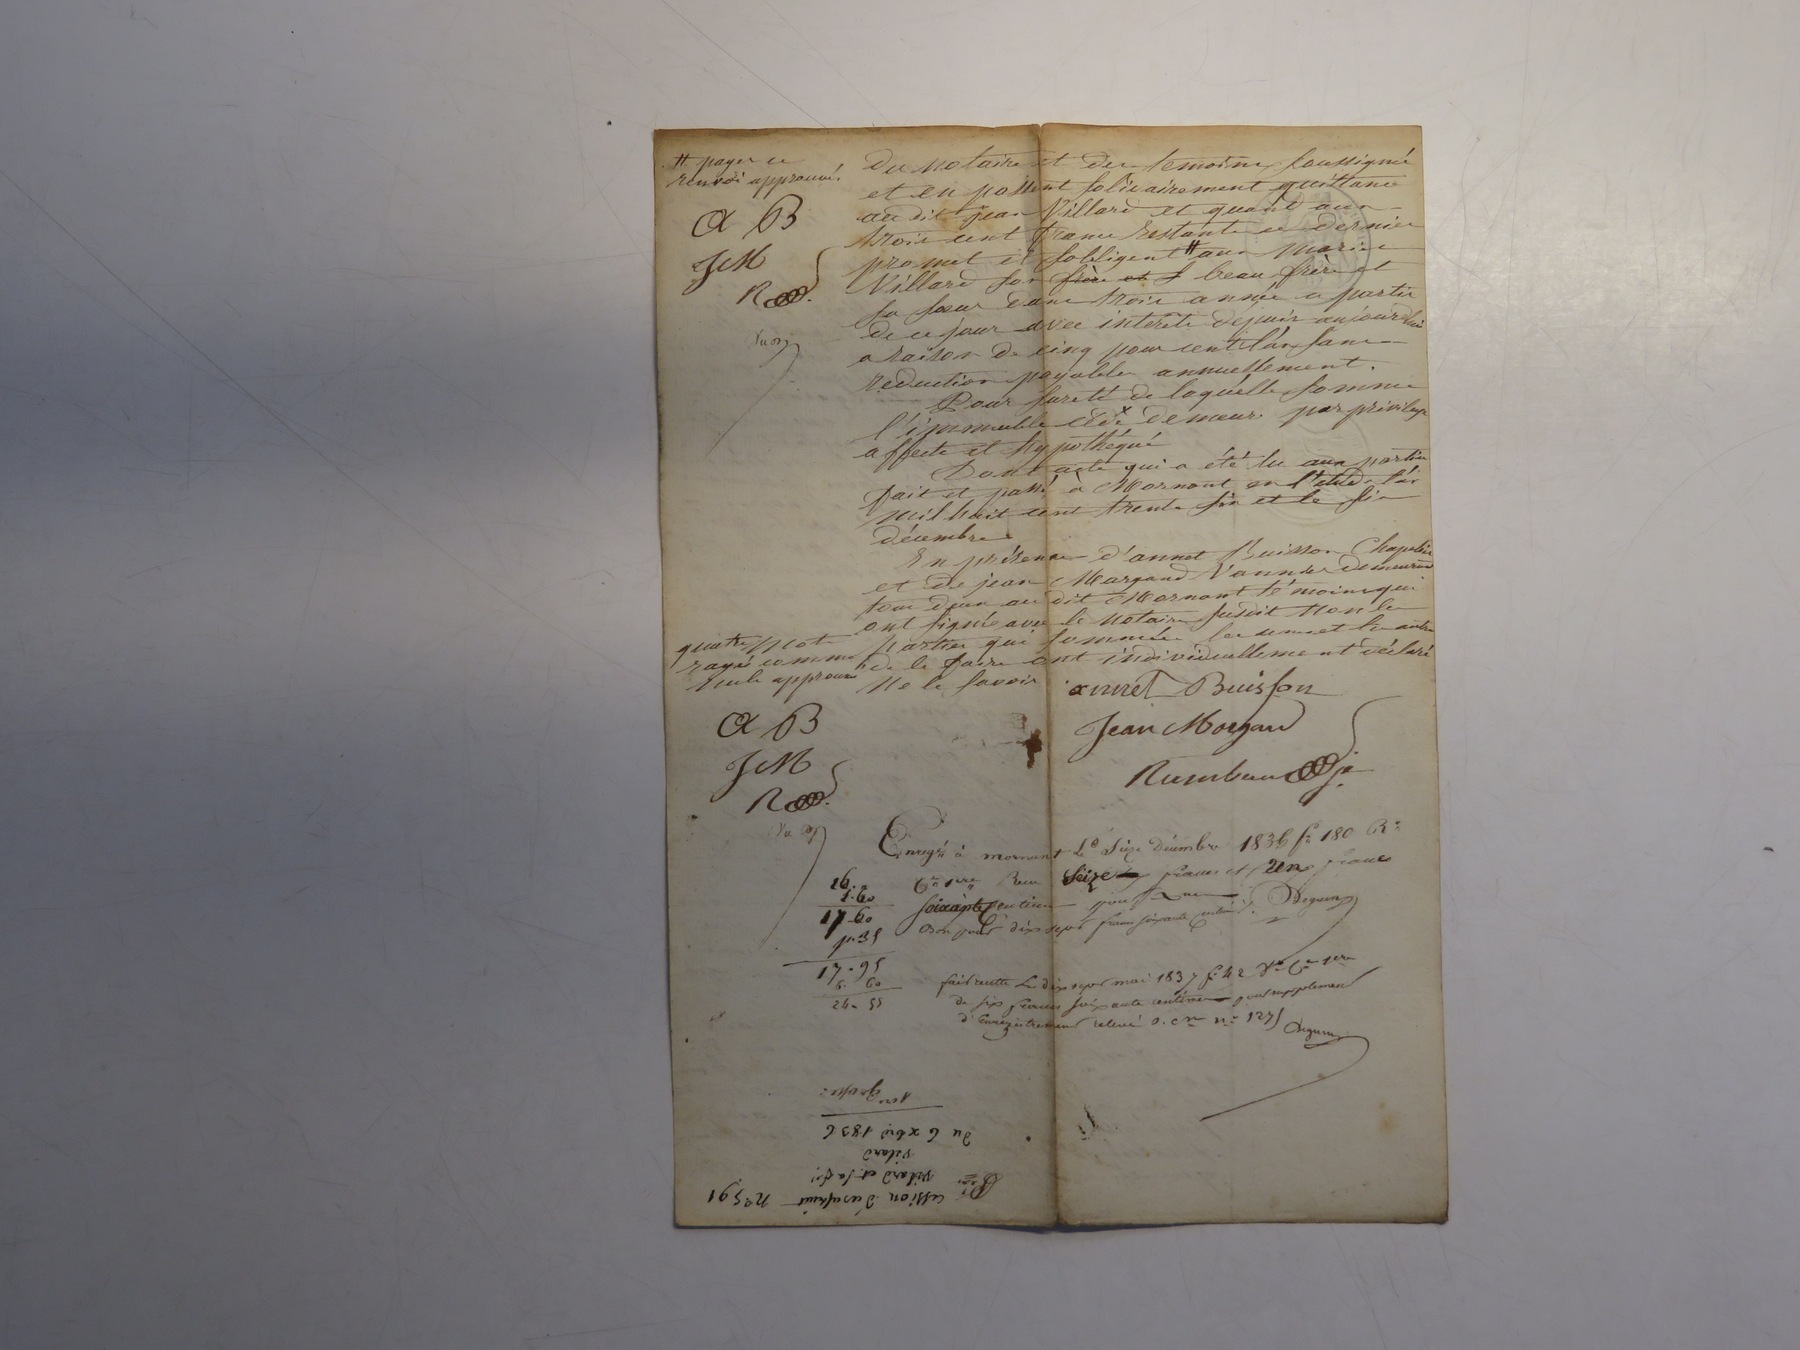 # payer ce
renvoi approuvé.
A B
JM
R
du notaire et des temoins soussignés
et en passent solidairement quittance
audit jean Villard et quant aux
trois cent francs restants ce dernier
promet et s'obligent # aux mariés
Villard son frère et s beau frère et
sa sœur dans trois années a partir
de ce jour avec intérêts depuis aujourdhui
a raison de cinq pour cent l'an sans
reduction payables annuellement.
Pour sureté de laquelle somme
l'immeuble cédé demeure par privilege
affecté et hypothéqué
Dont acte qui a été lu aux parties
fait et passé à Mornant en l'étude l'an
mil huit cent trente six et le six
décembre
En présence d'annet Buisson Chapelier
et de jean Morgand Vannier demeurant
tous deux au dit Mornant témoins qui
ont signé avec le notaire susdit non les
parties qui sommées les unes et les autres
de le faire ont individuellement déclaré
ne le savoir
quatre mots
rayés comme
nuls approuvé
A B
JM
R
annet Buisson
Jean Morgand
Enregé à mornant le Seize Décembre 1836 fo 180 Ro
Ce 1ere Reçu Seize francs et
soixante centimes pour
Bon pour dix sept francs soixante centimes.
16.
1.60
17.60
1.35
17.95
6.60
24-55
fait recette le dix sept mai 1837 fo 42 Vo Ce 1ere
de six francs soixante centimes pour supplement
d'Enregistrement relevé
Cession d'usufruit no 591
Vilard et sa f.
Vilard
du 6 xbre 1836
1ere Grosse